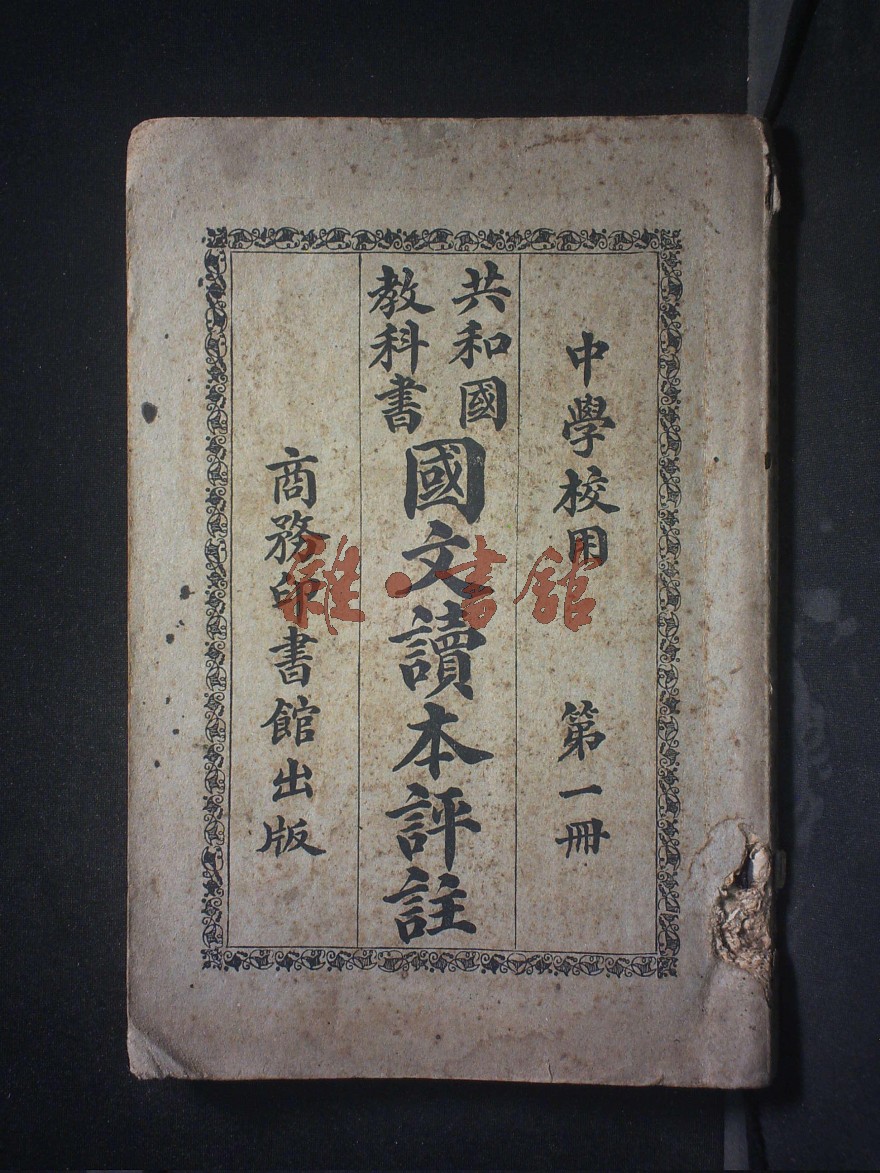 中學校用 第一冊
共和國
教科書
國文讀本評註
商務印書館出版
雜·書館